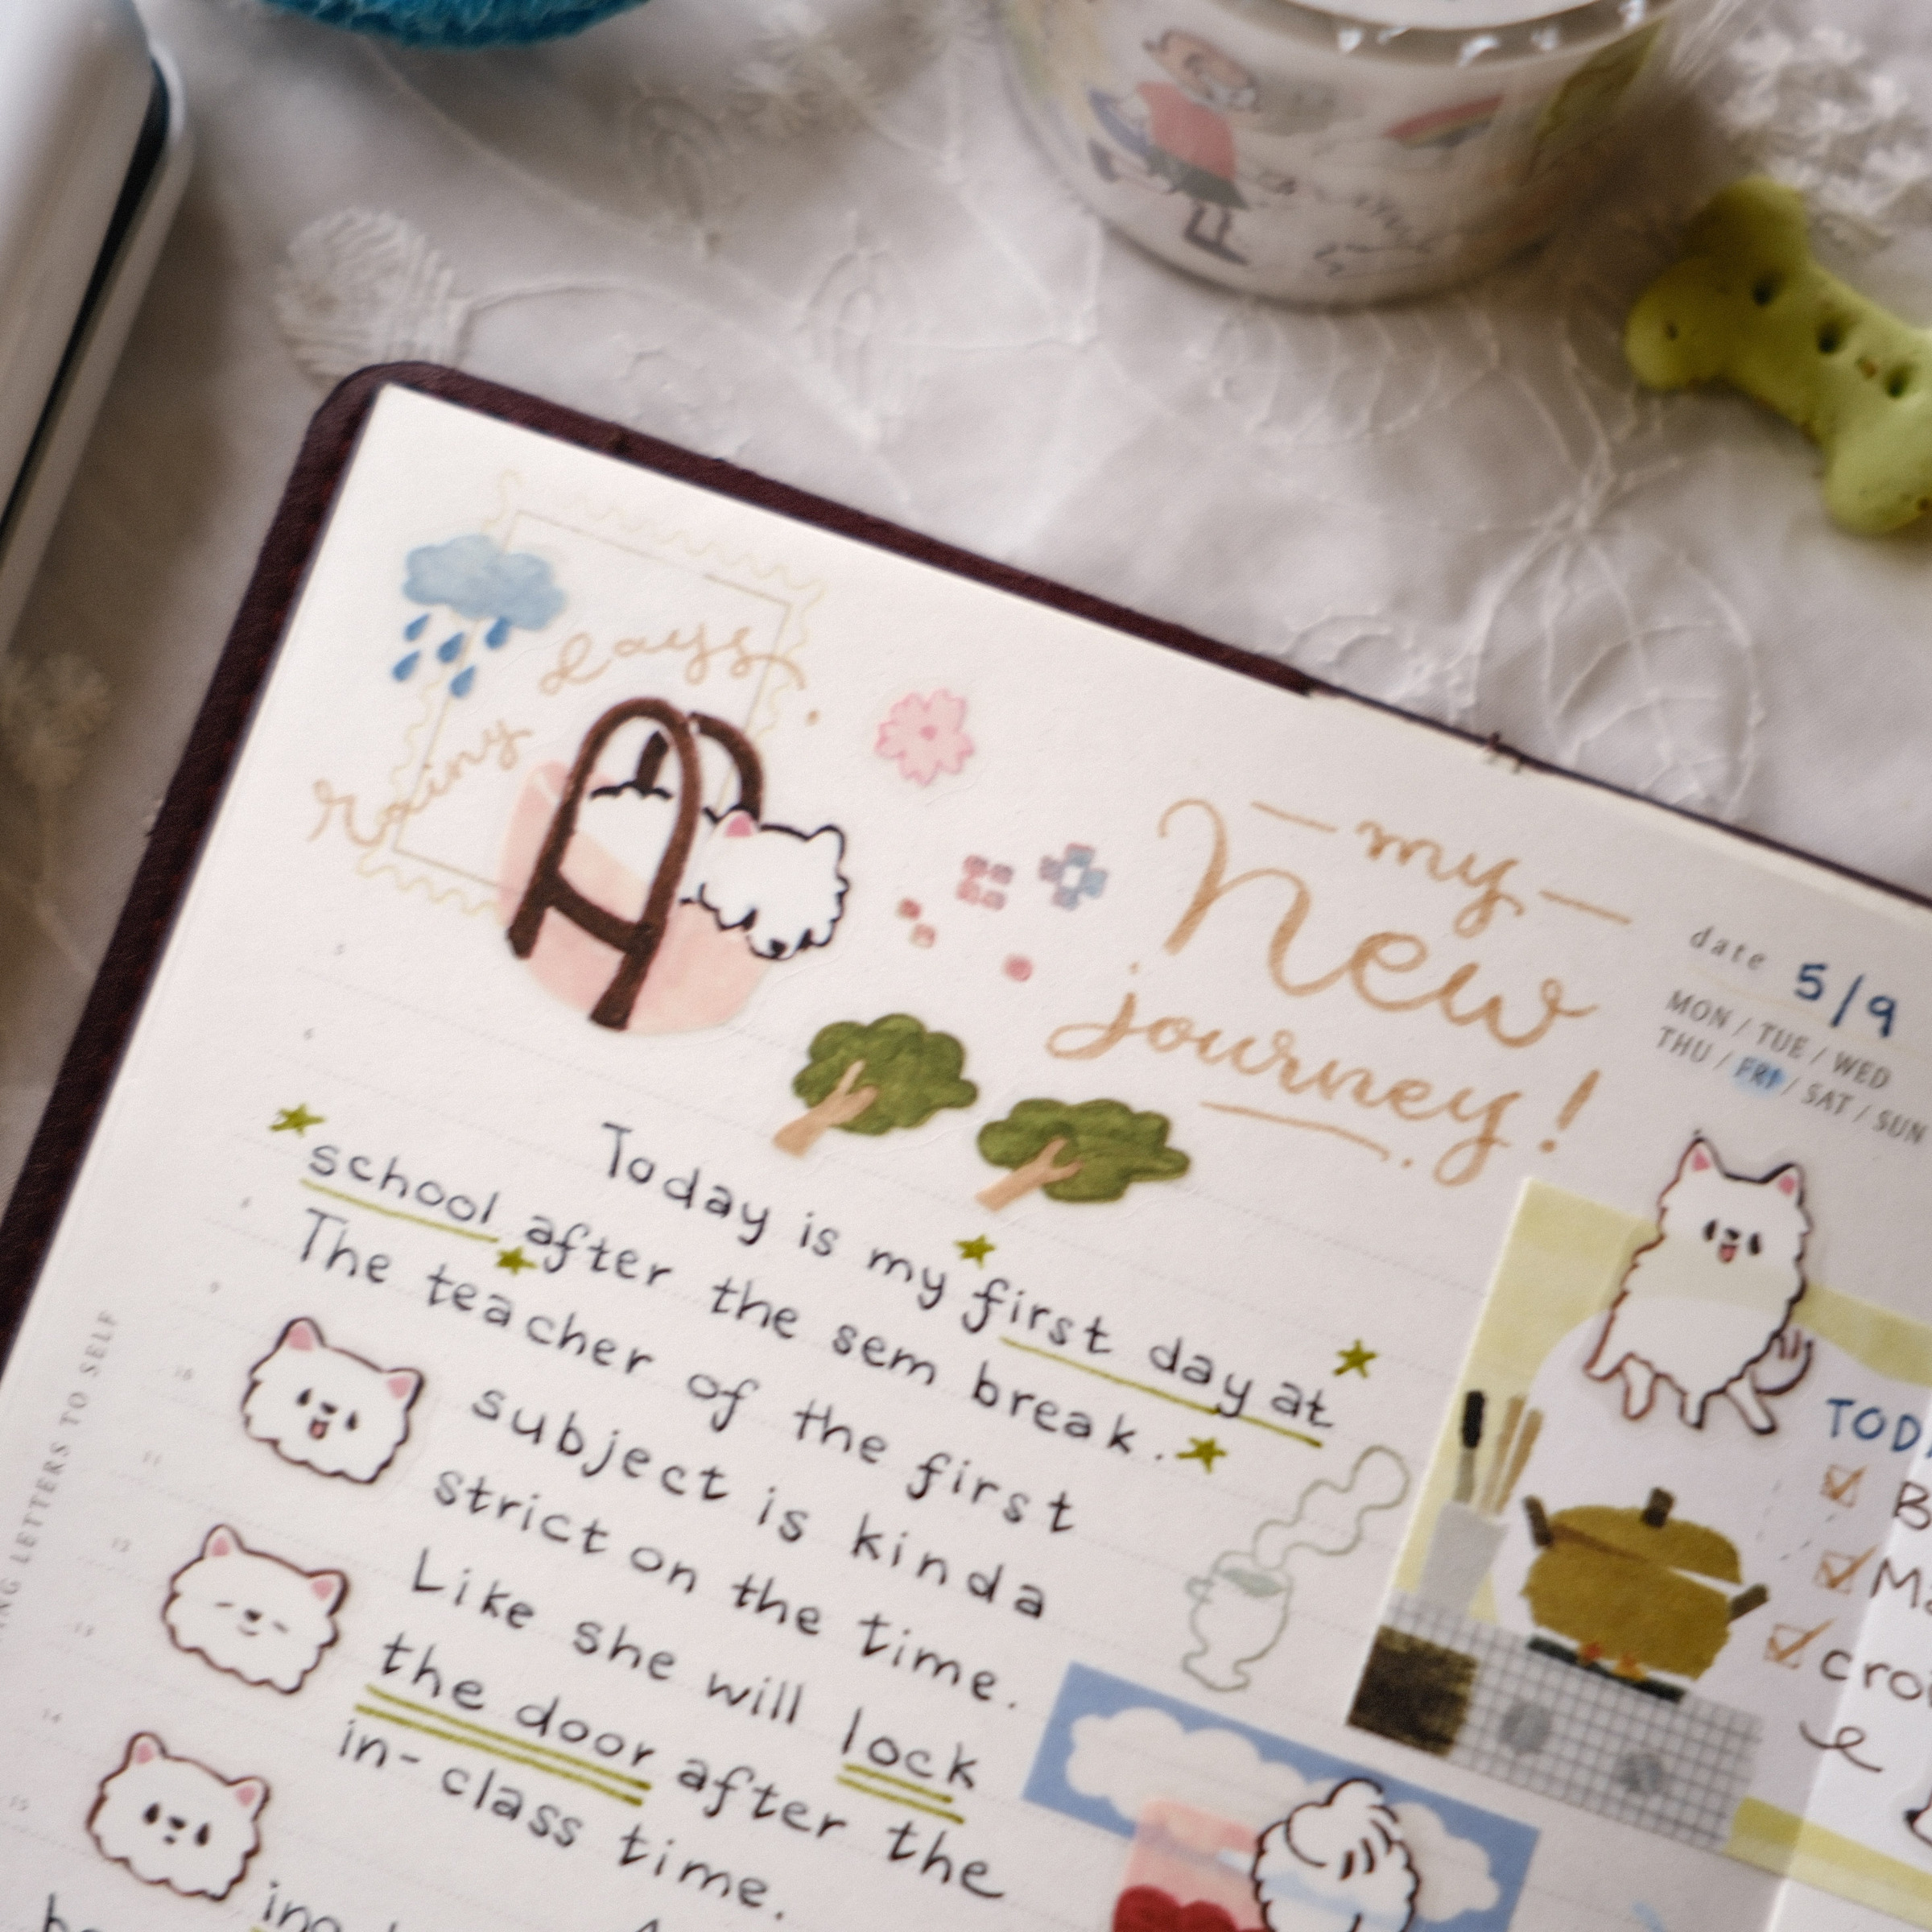 rainy days
my
New
journey!
date 5/9
MON / TUE / WED
THU / FRI / SAT / SUN
Today is my first day at
school after the sem break.
The teacher of the first
subject is kinda
strict on the time.
Like she will lock
the door after the
in-class time.
LETTERS TO SELF
5
6
9
10
11
12
13
14
15